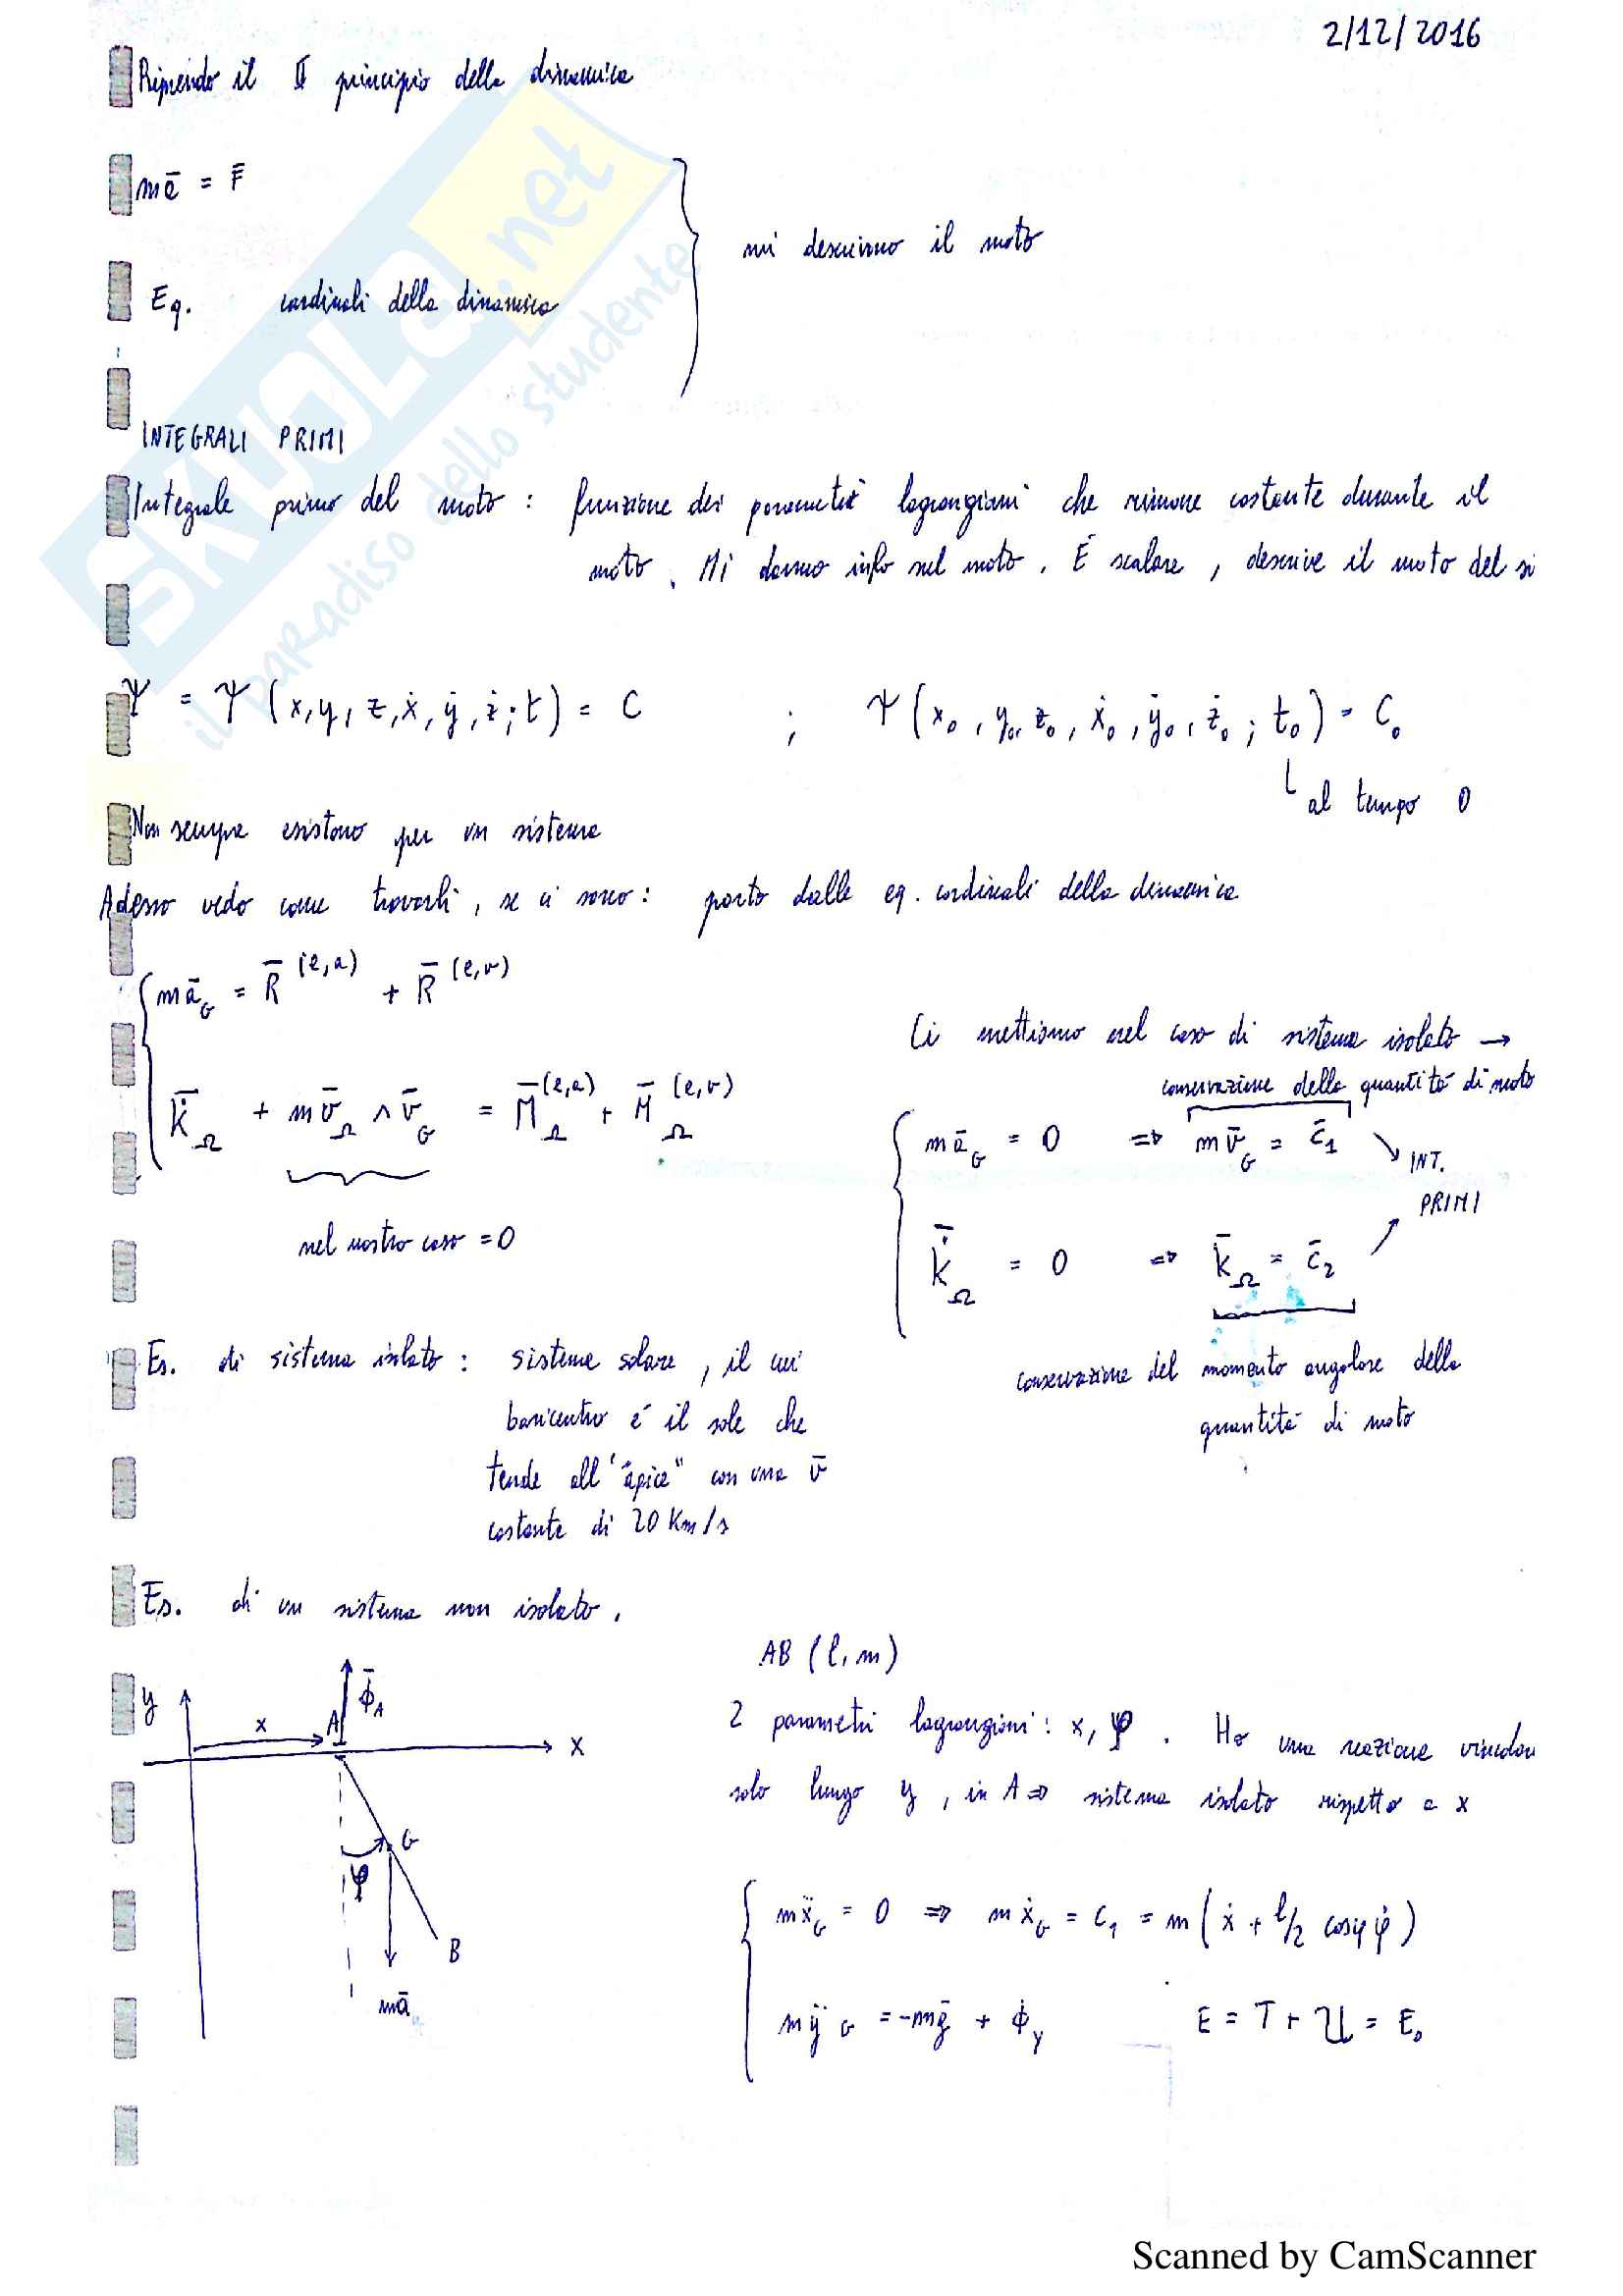 2/12/2016
Riprendo il II principio della dinamica
mā = F̄
mi descrivono il moto
Eq. cardinali della dinamica
INTEGRALI PRIMI
Integrale primo del moto : funzione dei parametri lagrangiani che rimane costante durante il
moto. Mi danno info sul moto. È scalare, descrive il moto del si
Ψ = Ψ (x, y, z, ẋ, ẏ, ż; t) = C ; Ψ (x₀, y₀, z₀, ẋ₀, ẏ₀, ż₀; t₀) = C₀
al tempo 0
Non sempre esistono per un sistema
Adesso vedo come trovarli, se ci sono: parto dalle eq. cardinali della dinamica
mā_G = R̄^(e,a) + R̄^(e,v)
Ci mettiamo nel caso di sistema isolato →
conservazione della quantità di moto
K̄̇_Ω + m v̄_Ω ∧ v̄_G = M̄_Ω^(e,a) + M̄_Ω^(e,v)
nel nostro caso = 0
mā_G = 0 ⇒ m v̄_G = c̄₁
INT.
PRIMI
K̄̇_Ω = 0 ⇒ K̄_Ω = c̄₂
conservazione del momento angolare della
quantità di moto
Es. di sistema isolato : sistema solare, il cui
baricentro è il sole che
tende all'"apice" con una v̄
costante di 20 Km/s
Es. di un sistema non isolato.
AB (l, m)
2 parametri lagrangiani: x, φ. Ho una reazione vincolar
solo lungo y, in A ⇒ sistema isolato rispetto a x
y
x
A
Φ̄_A
x
G
φ
B
mā
mẍ_G = 0 ⇒ mẋ_G = C₁ = m(ẋ + l/2 cosφ φ̇)
mÿ_G = -mḡ + Φ_y E = T + U = E₀
Scanned by CamScanner
SKUOLA.net
il paradiso dello studente